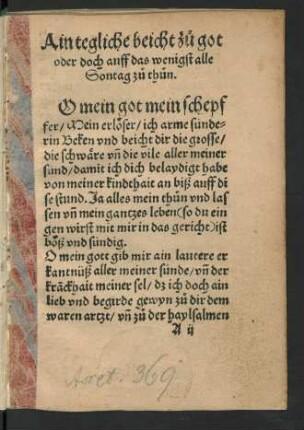 Ain tegliche beicht zů got
oder doch auff das wenigst alle
Sontag zů thůn.
O mein got mein schepf
fer/ Mein erlöser/ ich arme sünde-
rin Beken vnd beicht dir die grosse/
die schwäre vñ die vile aller meiner
sünd/ damit ich dich belaydigt habe
von meiner kindthait an biß auff di
se stund. Ja alles mein thůn vnd las
sen vñ mein gantzes leben (so du ein
gen wirst mit mir in das gericht) ist
böß vnd sündig.
O mein gott gib mir ain lautere er
kantnüß aller meiner sünde/ vñ der
kräckhait meiner sel/ dz ich doch ain
lieb vnd begirde gewyn zů dir dem
waren artzt/ vñ zů der haylsalmen
A ij
Ascet. 369